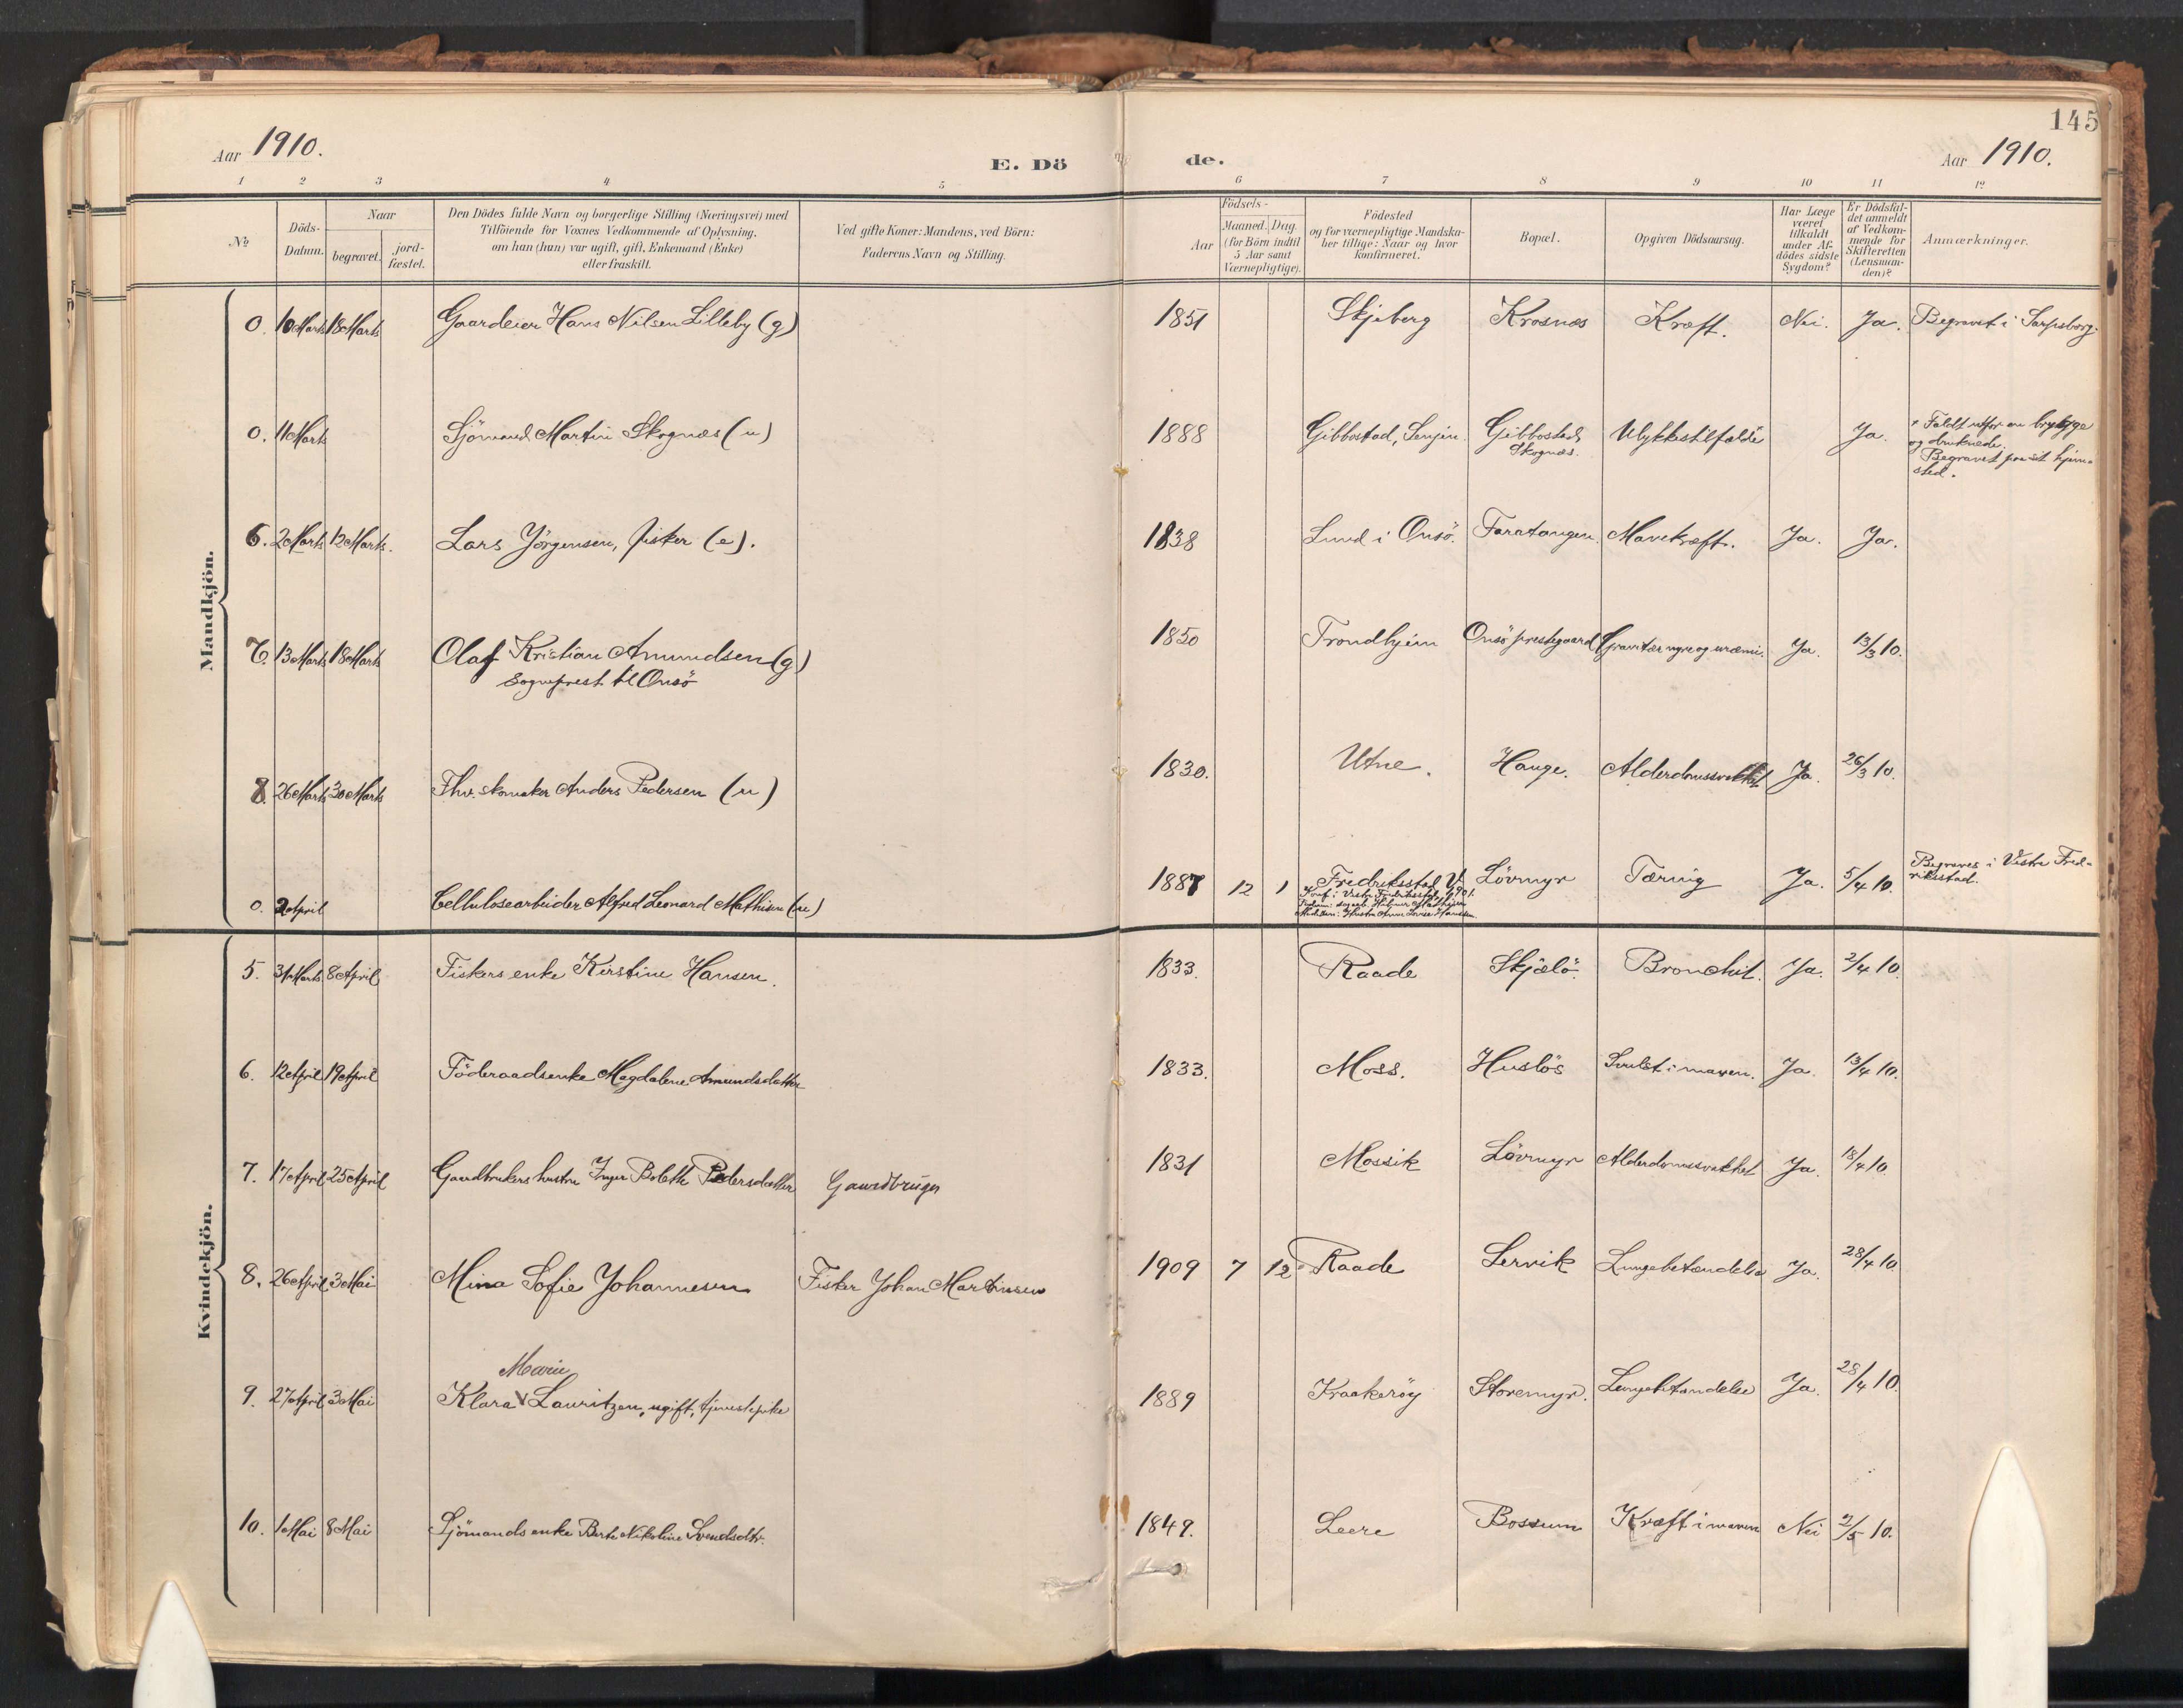 145
Aar 1910.
E. Dö
de.
Aar 1910.
1 2 3 4 5 6 7 8 9 10 11 12
No
Döds-
Datum.
Naar
begravet.
jord-
fæstet.
Den Dödes fulde Navn og borgerlige Stilling (Næringsvei) med
Tilföiende for Voxnes Vedkommende af Oplysning,
om han (hun) var ugift, gift, Enkemand (Enke)
eller fraskilt.
Ved gifte Koner: Mandens, ved Börn:
Faderens Navn og Stilling.
Födsels-
Aar
Maaned. Dag.
(for Börn indtil
5 Aar samt
Værnepligtige).
Födested
og for værnepligtige Mandska-
ber tillige: Naar og hvor
konfirmeret.
Bopæl.
Opgiven Dödsaarsag.
Har Læge
været
tilkaldt
under Af-
dödes sidste
Sygdom?
Er Dödsfal-
det anmeldt
af Vedkom-
mende for
Skifteretten
(Lensman-
den)?
Anmærkninger.
Mandkjön.
0. 10 Marts 18 Marts Gaardeier Hans Nilsen Lilleby (g) 1851 Skjeberg Krosnes Kræft. Nei. Ja. Begravet i Sarpsborg.
0. 11 Marts Sjömand Martin Skognæs (u) 1888 Gibbostad, Senjen. Gibbostad, Ulykkestilfælde Ja. Faldt utfor en brygge
Skognæs. og druknede.
Begravet paa sit hjem-
sted.
6. 2 Marts 12 Marts. Lars Jörgensen, fisker (e). 1838 Lund i Onsö. Faratangen. Mavekræft. Ja. Ja.
7. 13 Marts 18 Marts Olaf Kristian Amundsen (g) 1850 Trondhjem Onsö prestegaard nyre og uræmi. Ja. 13/3 10.
Sogneprest til Onsö
8. 26 Marts 30 Marts Fhv. skomaker Anders Pedersen (u) 1830. Utne. Hauge. Alderdomssvakhet Ja. 26/3 10.
0. 2 April Cellulosearbeider Alfred Leonard Mathisen (u) 1887 12 1 Fredriksstad V. Lövmyr Tæring Ja. 5/4 10. Begraves i Vestre Fred-
riksstad.
Konf. i Vestre Fredriksstad
Kvindekjön.
5. 31 Marts 8 April Fiskers enke Kirstine Hansen. 1833. Raade Skjælö. Bronchit. Ja. 2/4 10.
6. 12 April 19 April Föderaadsenke Magdalene Amundsdatter 1833. Moss. Huslös Svulst i maven. Ja. 13/4 10.
7. 17 April 25 April Gaardbrukers hustru Inger Bolette Pedersdatter Gaardbruger 1831 Mossik Lövmyr Alderdomssvakhet Ja. 18/4 10.
8. 26 April 3 Mai Mina Sofie Johannesen Fisker Johan Martinsen 1909 7 12 Raade Lervik Lungebetændelse Ja. 28/4 10.
Marie
9. 27 April 3 Mai Klara Lauritzen, ugift, tjenestepike 1889 Kraakeröy Storemyr. Lungebetændelse Ja. 28/4 10.
10. 1 Mai 8 Mai Sjömands enke Berte Nikoline Svendsdtr. 1849. Leere Bossum Kræft i maven Nei 2/5 10.